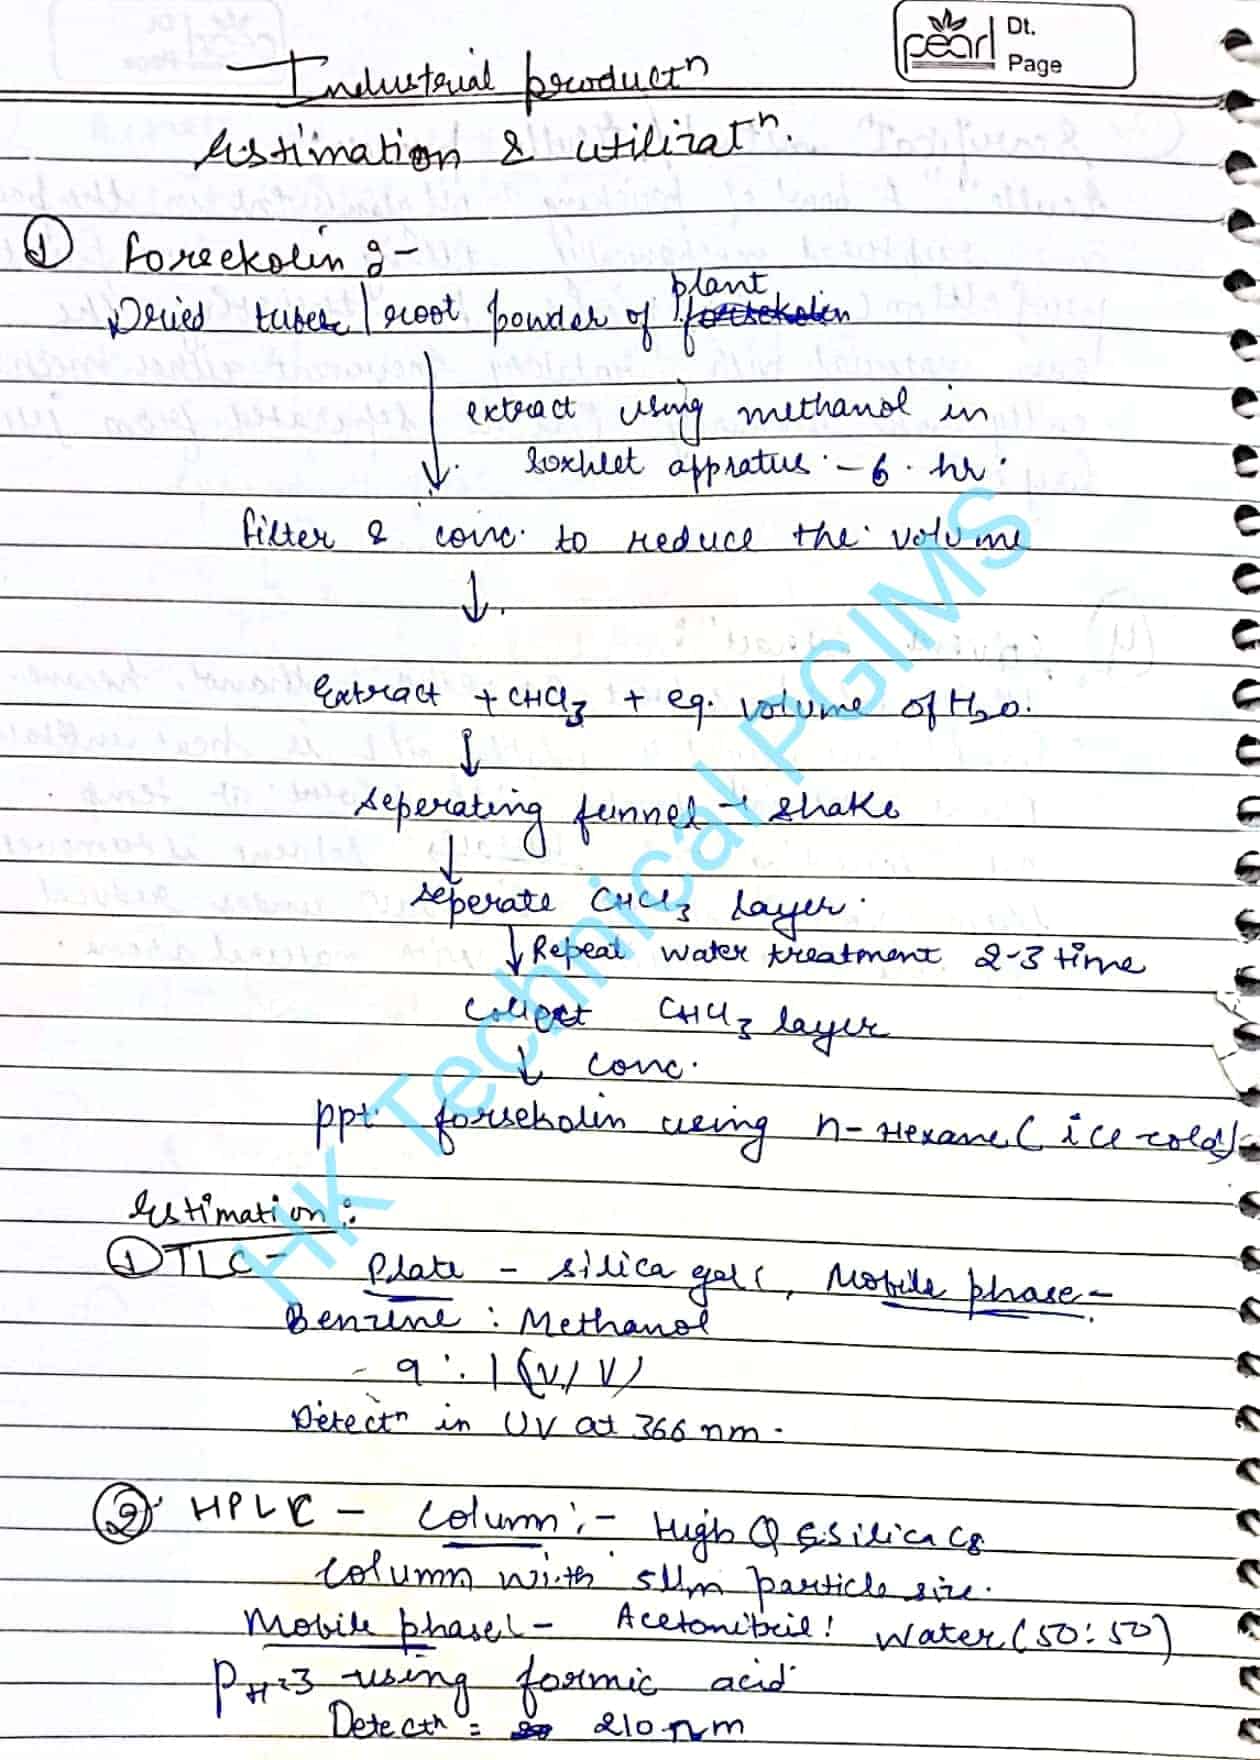 pearl Dt.
Page
Industrial productⁿ
Estimation & utilizatⁿ.
① Foreckolin :-
plant
Dried tuber / root powder of forsekolin
extract using methanol in
Soxhlet appratus – 6 hr.
filter & conc. to reduce the volume
↓
Extract + CHCl3 + eq. volume of H2O.
↓
Seperating funnel → shake
↓
Seperate CHCl3 layer.
↓ Repeat water treatment 2-3 time
Collect CHCl3 layer
↓ conc.
ppt. forsekolin using n-Hexane (ice-cold)
Estimation :
① TLC – Plate – silica gel, Mobile phase –
Benzine : Methanol
– 9 : 1 (V/V)
Detectⁿ in UV at 366 nm.
② HPLC – Column :– High Q silica C8
column with 5 µm particle size.
Mobile phase – Acetonitril : Water (50:50)
PH=3 using formic acid
Detectⁿ = 210 nm
HK Technical PGIMS